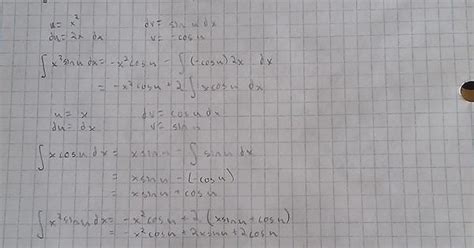 u = x² dv = sin u dx
du = 2x dx v = -cos u
∫ x² sin u dx = -x² cos u - ∫ (-cos u) 2x dx
= -x² cos u + 2 ∫ x cos u dx
u = x dv = cos u dx
du = dx v = sin u
∫ x cos u dx = x sin u - ∫ sin u dx
= x sin u - (-cos u)
= x sin u + cos u
∫ x² sin u dx = -x² cos u + 2 (x sin u + cos u)
= -x² cos u + 2x sin u + 2 cos u